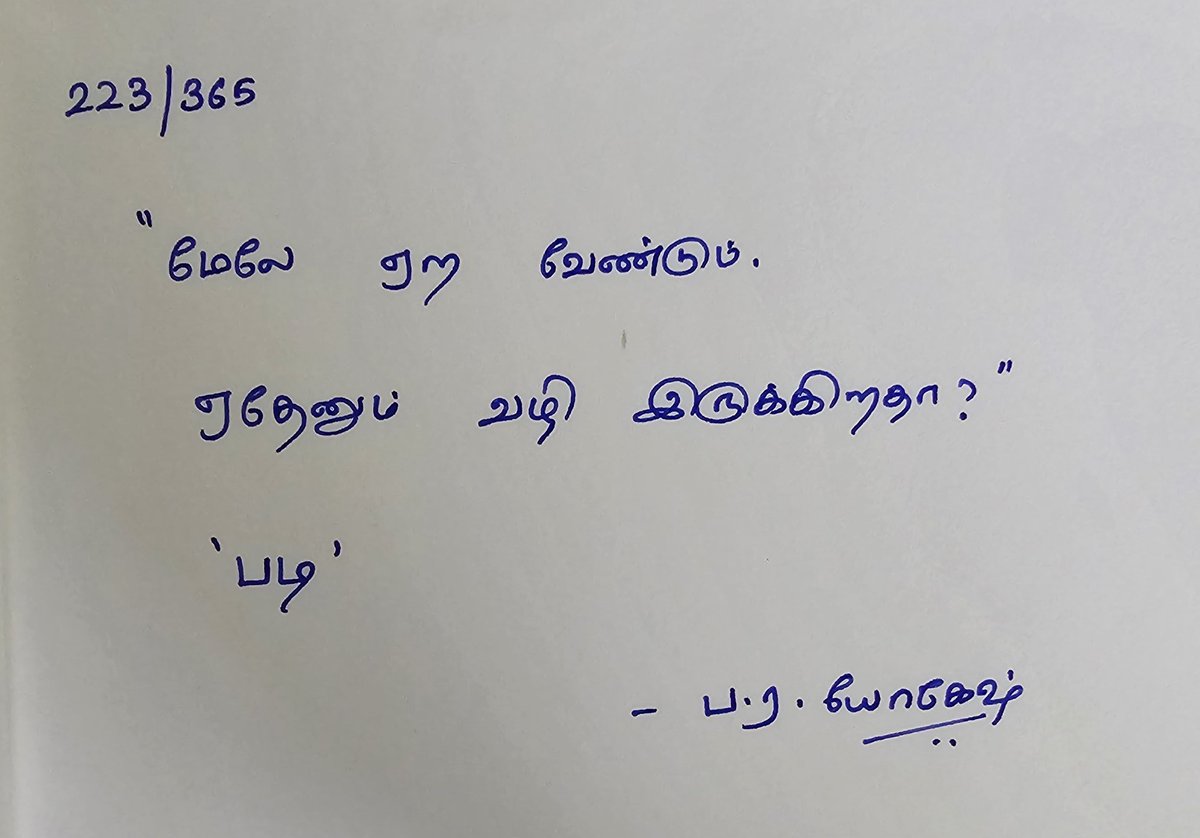 223/365
"மேலே ஏற வேண்டும்.
ஏதேனும் வழி இருக்கிறதா?"
'படி'
- ப.ர. யோகேஷ்